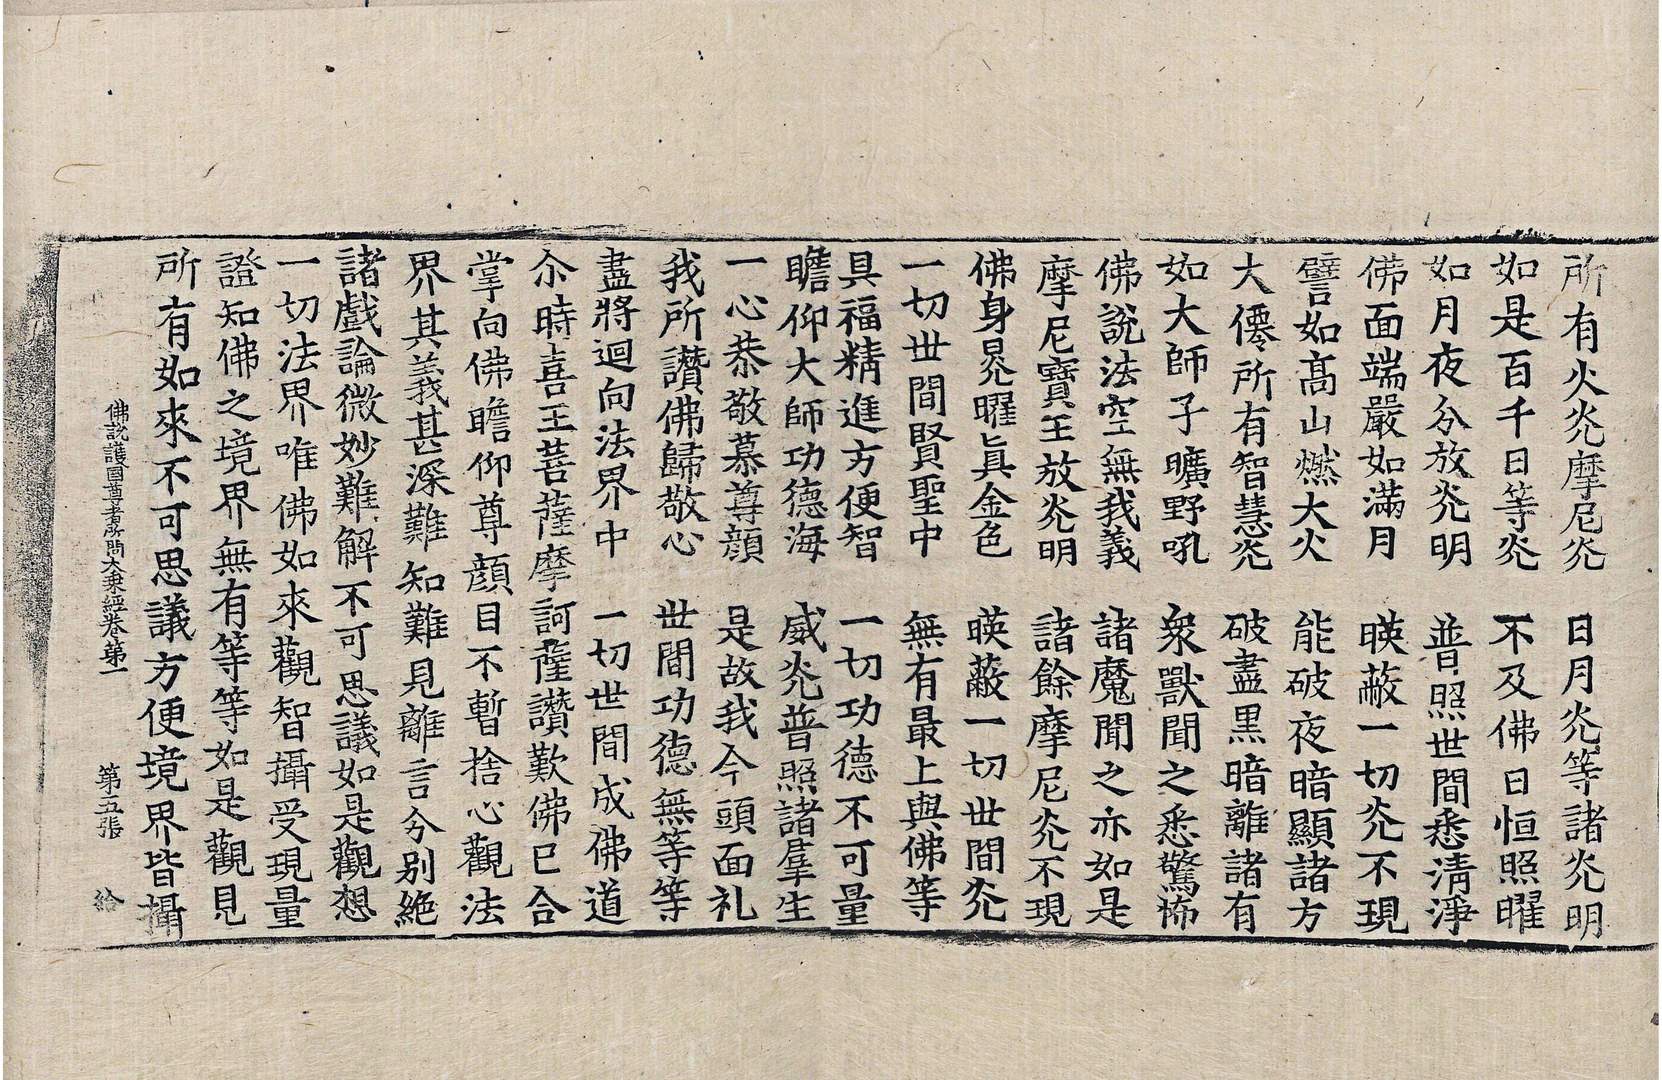 所有火炎摩尼炎　日月炎等諸炎明
如是百千日等炎　不及佛日恒照曜
如月夜分放炎明　普照世間悉清淨
佛面端嚴如滿月　暎蔽一切炎不現
譬如高山燃大火　能破夜暗顯諸方
大僊所有智慧炎　破盡黑暗離諸有
如大師子曠野吼　衆獸聞之悉驚怖
佛說法空無我義　諸魔聞之亦如是
摩尼寶王放炎明　諸餘摩尼炎不現
佛身晃曜眞金色　暎蔽一切世間炎
一切世間賢聖中　無有最上與佛等
具福精進方便智　一切功德不可量
瞻仰大師功德海　威炎普照諸羣生
一心恭敬慕尊顔　是故我今頭面礼
我所讃佛歸敬心　世間功德無等等
盡將迴向法界中　一切世間成佛道
尒時喜王菩薩摩訶薩讃歎佛已合
掌向佛瞻仰尊顔目不暫捨心觀法
界其義甚深難知難見離言分別絶
諸戲論微妙難解不可思議如是觀想
一切法界唯佛如來觀智攝受現量
證知佛之境界無有等等如是觀見
所有如來不可思議方便境界皆攝
佛說護國尊者所問大乘經卷第一　第五張　給